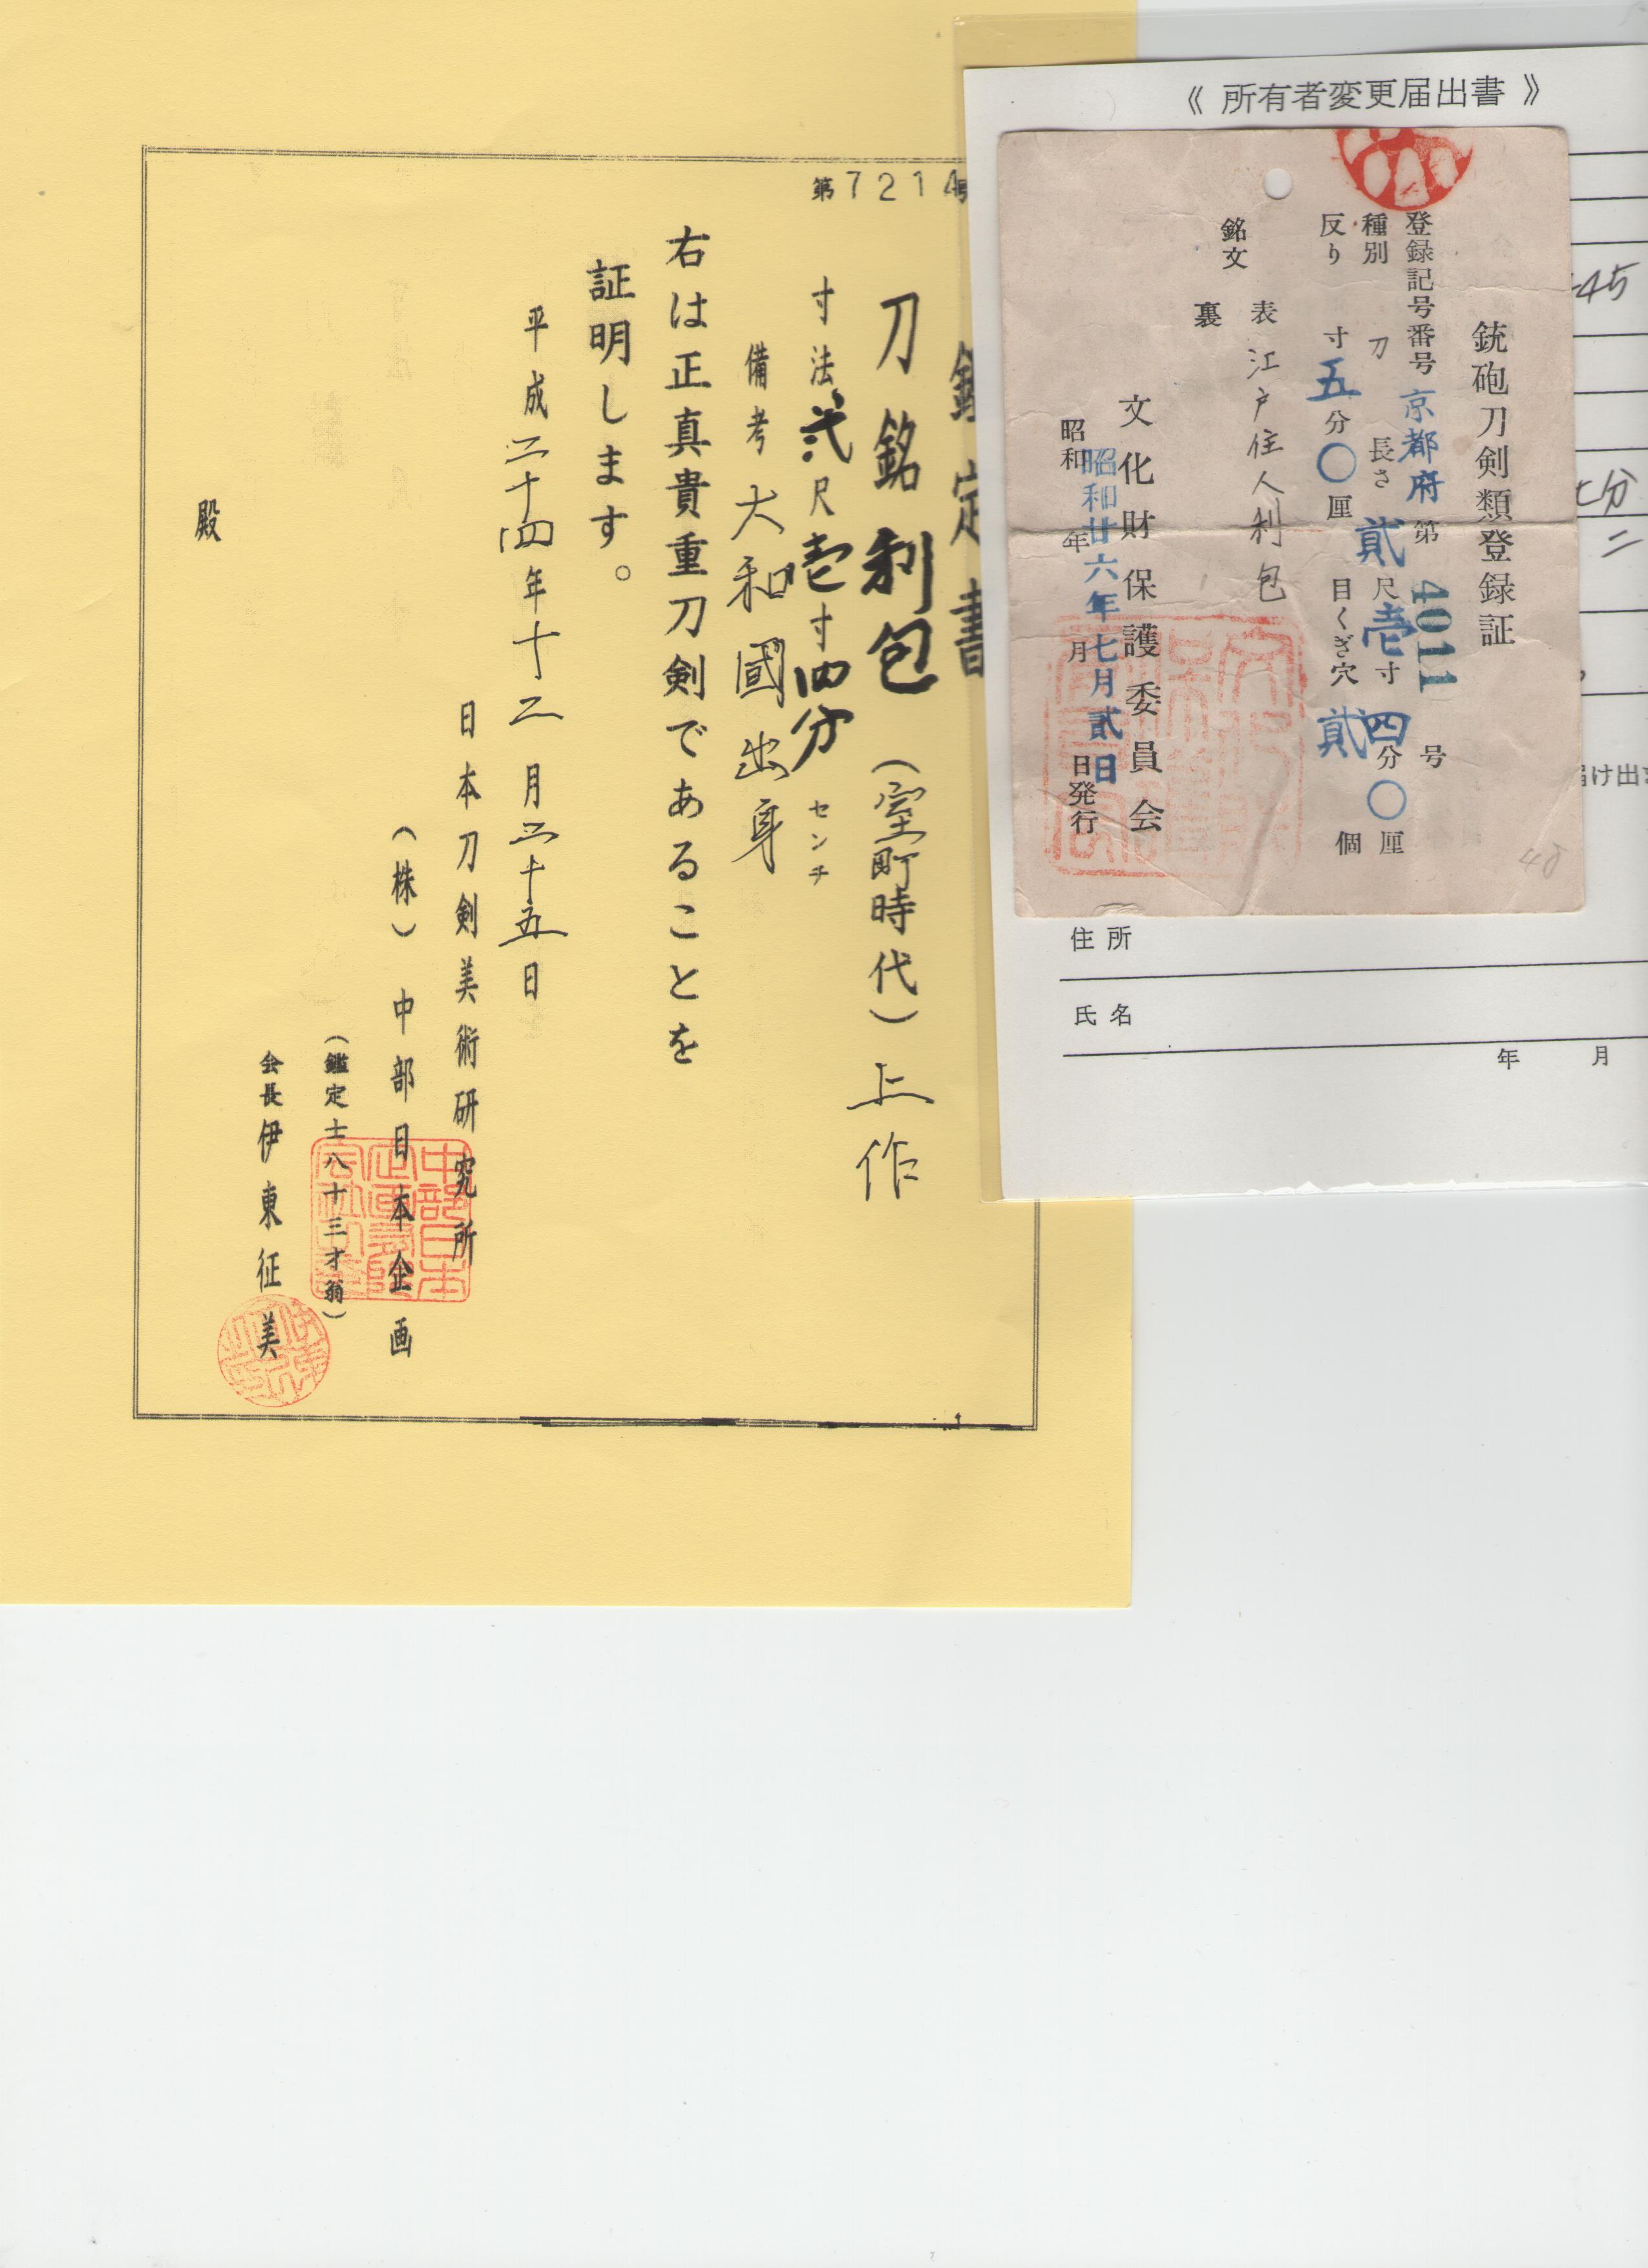 《 所有者変更届出書 》
銃砲刀剣類登録証
登録記号番号 京都府 第 4011 号
種別 刀 長さ 貳尺壱寸四分〇厘
反り 寸五分〇厘 目くぎ穴 貳個
銘文 表 江戸住人利包
裏
文化財保護委員会
昭和 年 月 日発行
昭和廿六年七月貳日
48
45
分
二
届け出
住所
氏名
年 月
鑑定書
第7214号
刀 銘 利包 (室町時代) 上作
寸法 弐尺壱寸四分 センチ
備考 大和國出身
右は正真貴重刀剣であることを
証明します。
平成二十四年十二月二十五日
日本刀剣美術研究所
(株) 中部日本企画
(鑑定士八十三才翁)
会長 伊東征美
殿